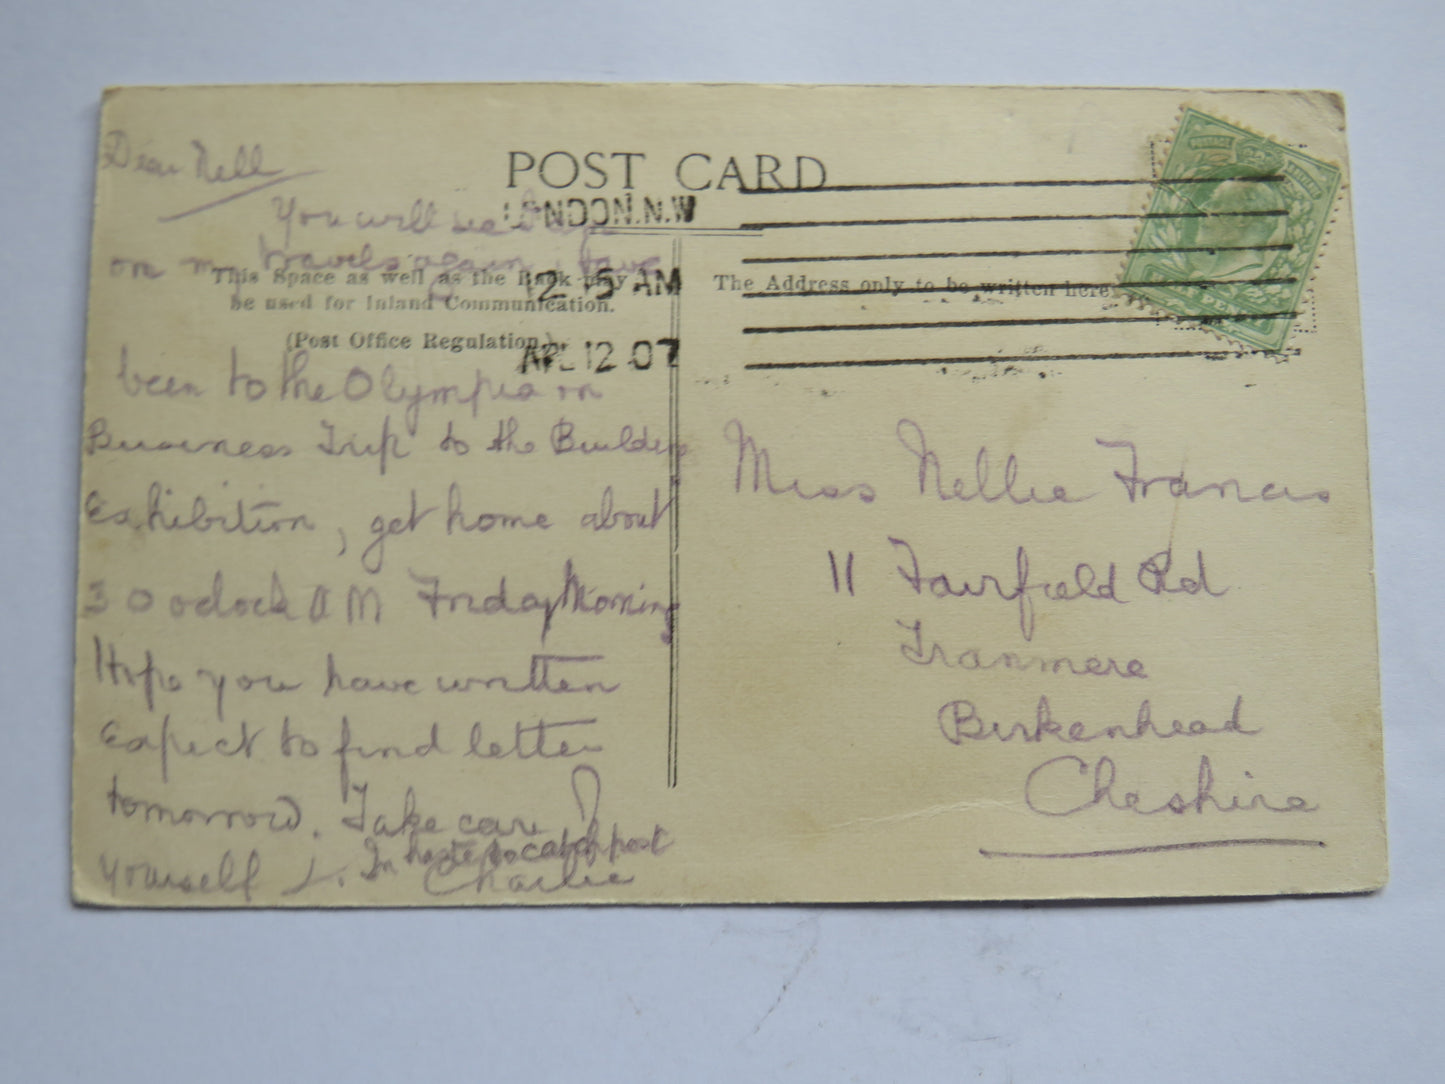 POST CARD
LONDON.N.W
2 15 AM
APL 12 07
This Space as well as the Back may
be used for Inland Communication.
(Post Office Regulation.)
The Address only to be written here
Dear Nell
You will see I am
on my travels again, have
been to the Olympia on
Business Trip to the Builders
Exhibition, get home about
3 O oclock AM Friday Morning
Hope you have written
Expect to find letter
tomorrow. Take care of
yourself L. In haste to catch post
Charlie
Miss Nellie Francis
11 Fairfield Rd
Tranmere
Birkenhead
Cheshire
POSTAGE